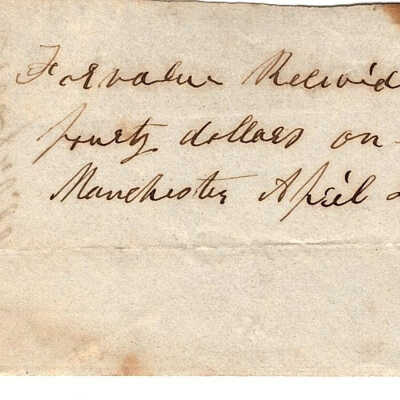 For value Recevd
fourty dollars on
Manchester April 2